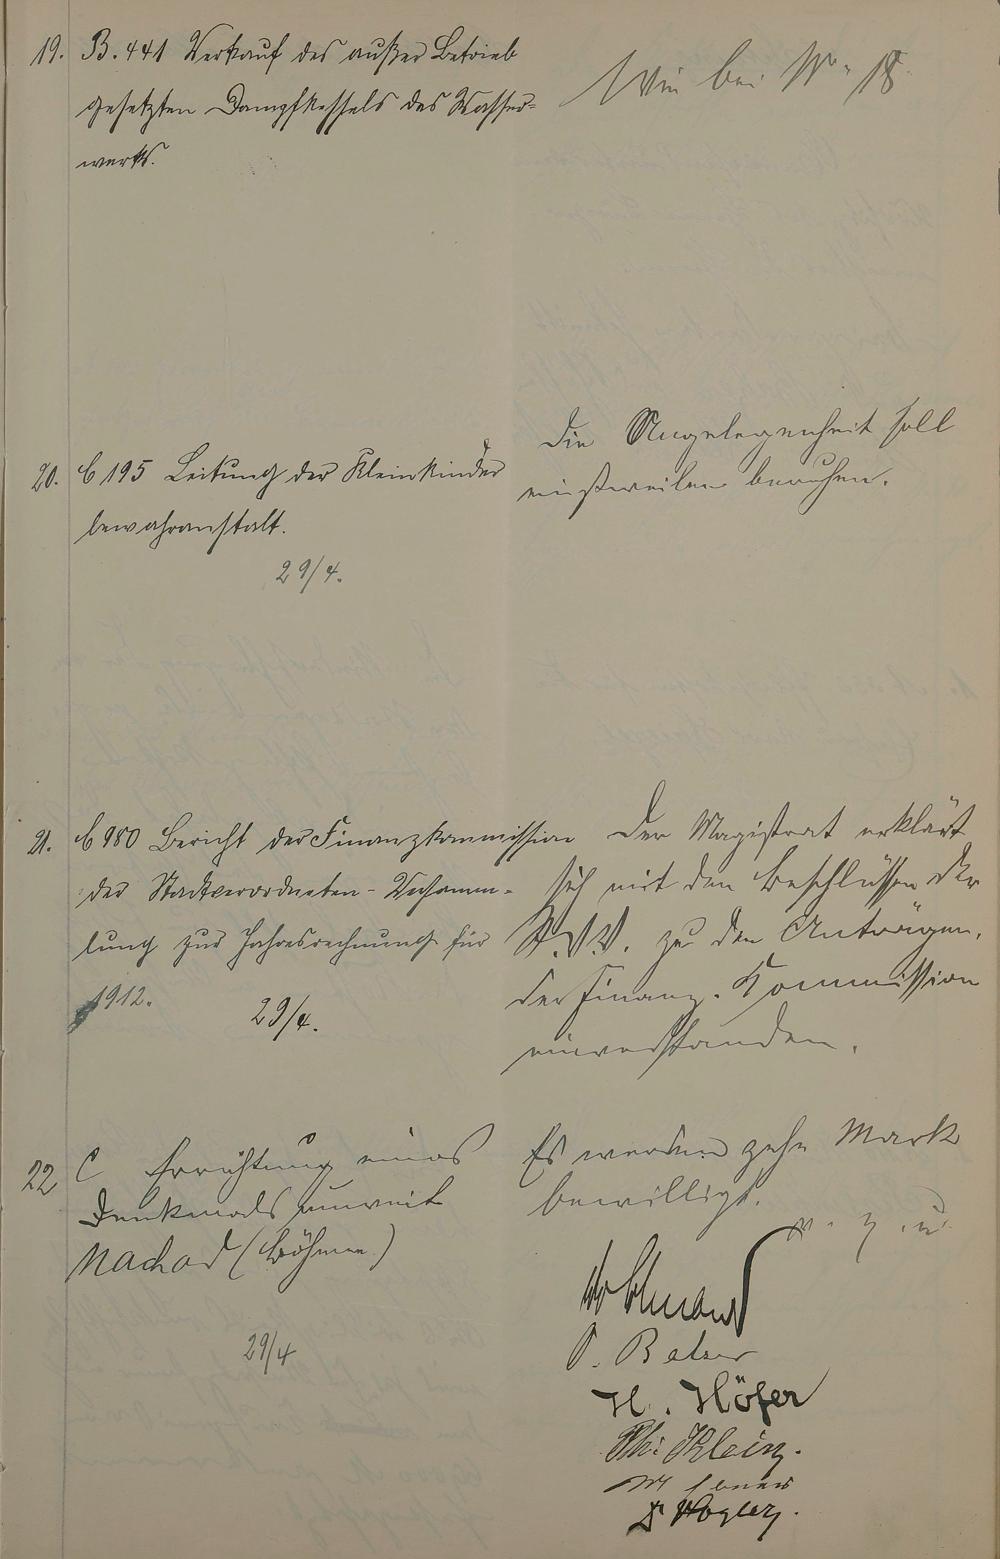 19. B. 441 Verkauf des außer Betrieb
gesetzten Dampfkessels des Wasser-
werks.
Wie bei No 18
20. C 195 Leitung der Kleinkinder
bewahranstalt.
29/4.
Die Angelegenheit soll
einstweilen beruhen.
21. C 980 Bericht der Finanzkommission
der Stadtverordneten-Versamm-
lung zur Jahresrechnung für
1912.
29/4.
Der Magistrat erklärt
sich mit den Beschlüssen der
St.V.V. zu den Anträgen
der Finanz-Kommission
einverstanden.
22 C Errichtung eines
Denkmals unweit
Nachod (Böhmen)
29/4
Es werden zehn Mark
bewilligt.
v. g. u.
H. Höfer
Ph. Klein.
Vogler.